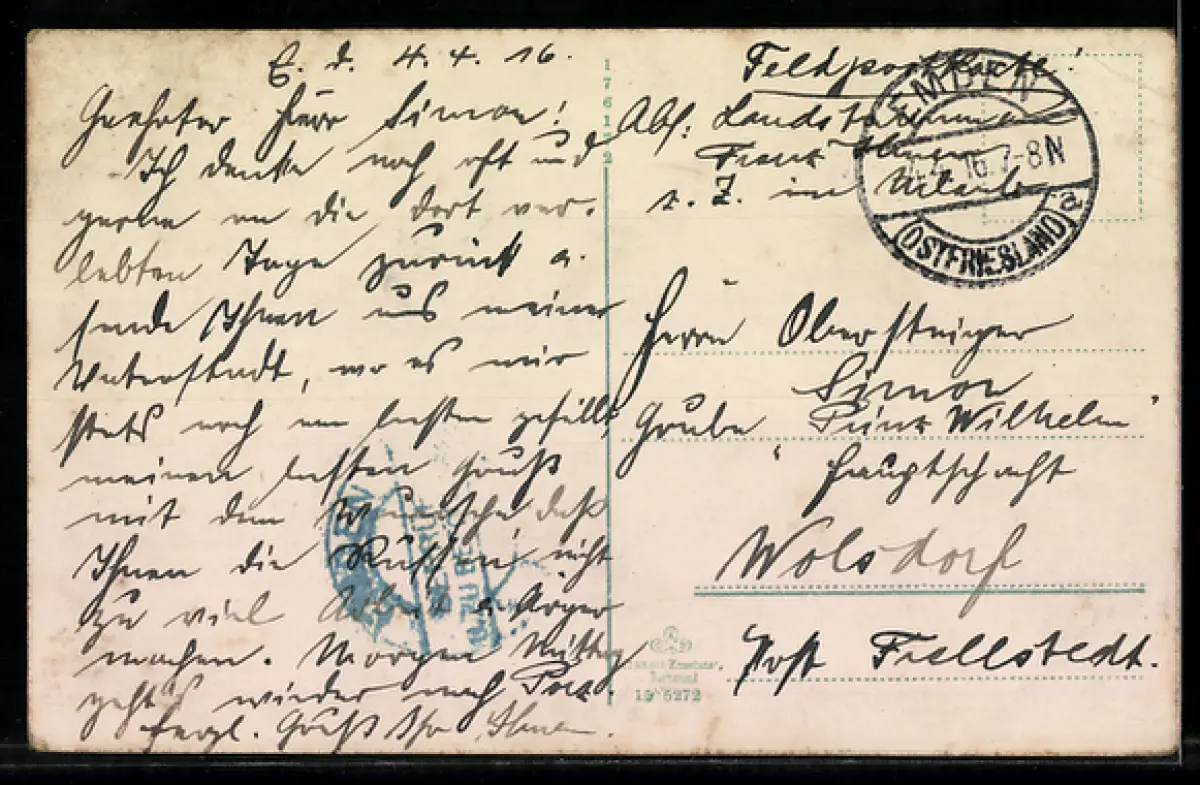 E. d. 4.4.16.
Geehrter Herr Simon!
Ich denke noch oft und
gerne an die dort ver-
lebten Tage zurück u.
sende Ihnen aus meiner
Vaterstadt, wo es mir
stets noch am besten gefällt
meinen besten Gruß
mit dem Wunsche, daß
Ihnen die Russen nicht
zu viel Arbeit u. Ärger
machen. Morgen Mittag
geht's wieder nach
Herzl. Gruß Ihr
176172
Feldpostkarte!
Abs: Landsturmmann
Franz
z. Z. in Urlaub
EMDEN
16. 7-8N
(OSTFRIESLAND) a
Herrn Obersteiger
Simon
Grube "Prinz Wilhelm"
Hauptschacht
Wolsdorf
Post Frellstedt.
19 5272